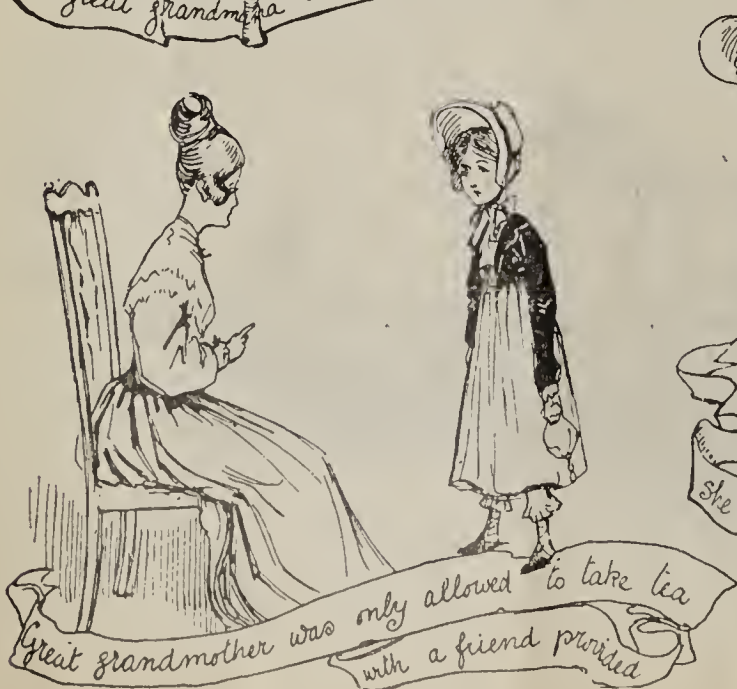 great grandmama
she
Great grandmother was only allowed to take tea
with a friend provided